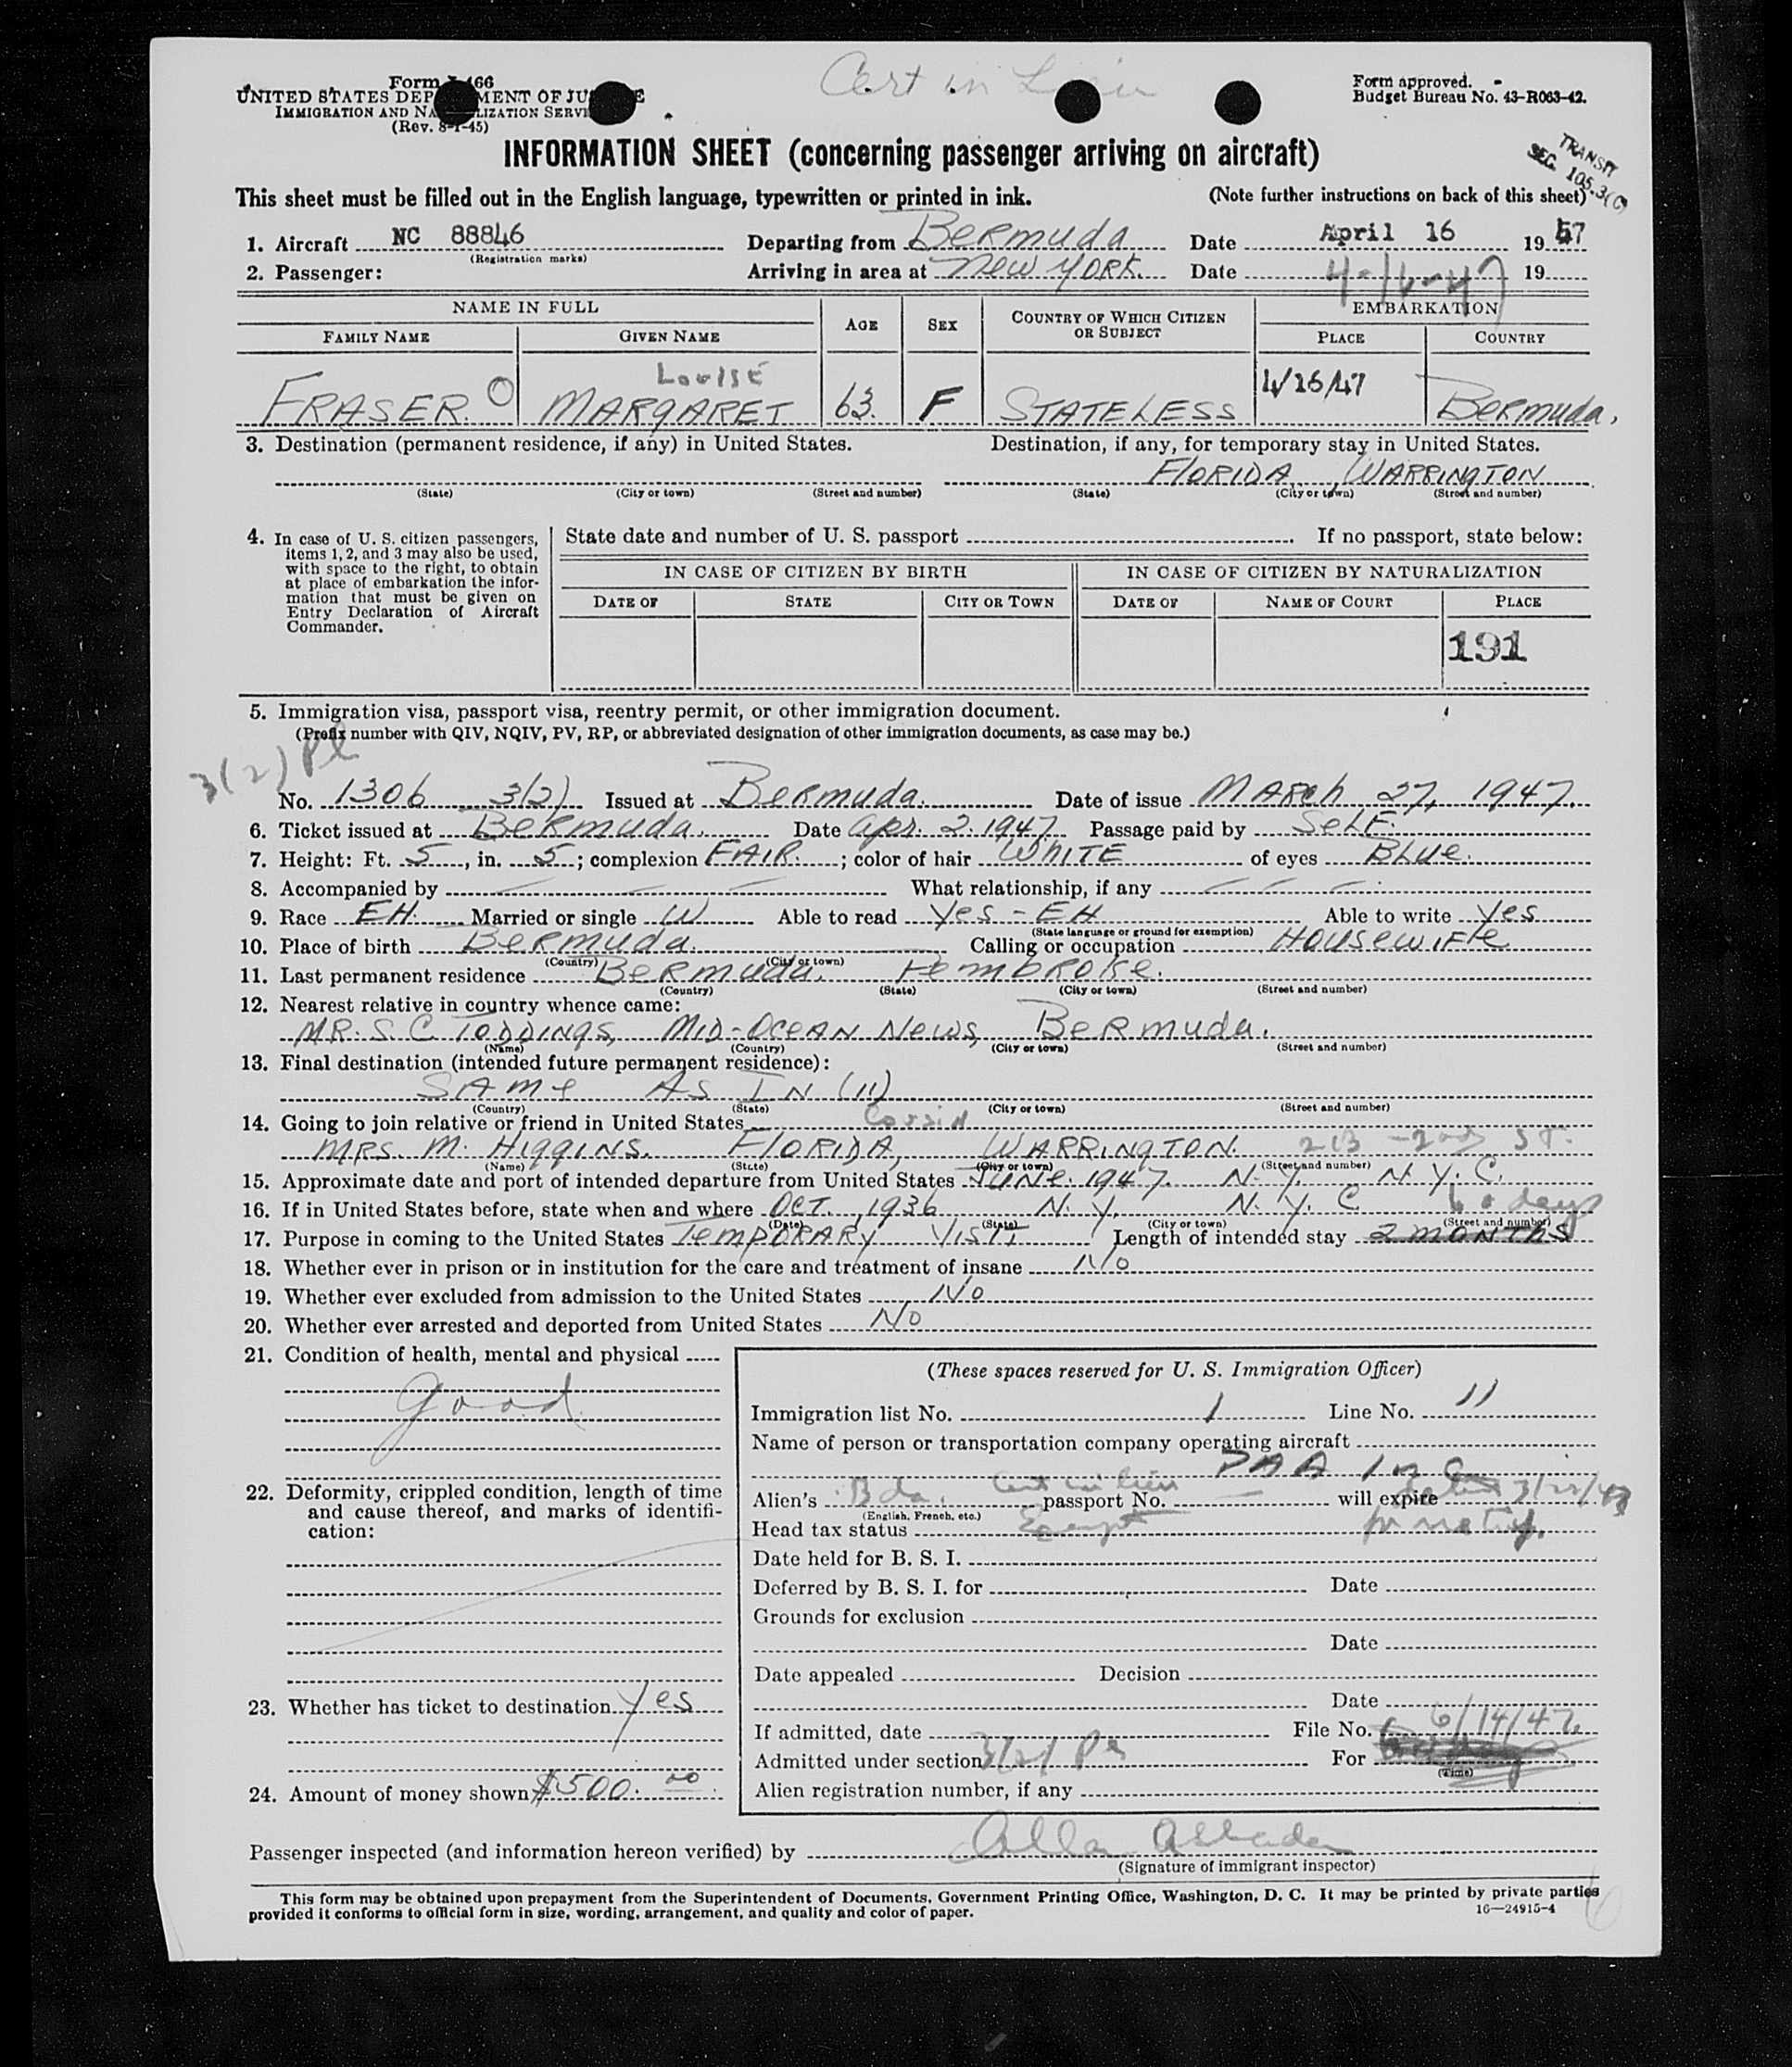 Cert in Lieu
Form 466
UNITED STATES DEPARTMENT OF JUSTICE
IMMIGRATION AND NATURALIZATION SERVICE
(Rev. 8-1-45)
Form approved.
Budget Bureau No. 43-R063-42.
TRANSIT
SEC. 105.3(c)
INFORMATION SHEET (concerning passenger arriving on aircraft)
This sheet must be filled out in the English language, typewritten or printed in ink. (Note further instructions on back of this sheet)
1. Aircraft NC 88846 Departing from Bermuda Date April 16 1947
(Registration marks)
2. Passenger: Arriving in area at New York. Date 4-16-47 19
NAME IN FULL AGE SEX COUNTRY OF WHICH CITIZEN OR SUBJECT EMBARKATION
FAMILY NAME GIVEN NAME PLACE COUNTRY
LOUISE
FRASER. MARGARET 63. F STATELESS 4/16/47 Bermuda.
3. Destination (permanent residence, if any) in United States. Destination, if any, for temporary stay in United States.
FLORIDA, WARRINGTON
(State) (City or town) (Street and number) (State) (City or town) (Street and number)
4. In case of U. S. citizen passengers, items 1, 2, and 3 may also be used, with space to the right, to obtain at place of embarkation the information that must be given on Entry Declaration of Aircraft Commander.
State date and number of U. S. passport . If no passport, state below:
IN CASE OF CITIZEN BY BIRTH IN CASE OF CITIZEN BY NATURALIZATION
DATE OF STATE CITY OR TOWN DATE OF NAME OF COURT PLACE
191
5. Immigration visa, passport visa, reentry permit, or other immigration document.
(Prefix number with QIV, NQIV, PV, RP, or abbreviated designation of other immigration documents, as case may be.)
3(2) Pl
No. 1306 3(2) Issued at Bermuda. Date of issue MARch 27, 1947.
6. Ticket issued at Bermuda. Date Apr. 2. 1947 Passage paid by SELF.
7. Height: Ft. 5, in. 5; complexion FAIR. ; color of hair WHITE of eyes BLUE.
8. Accompanied by — — — What relationship, if any — — —
9. Race EH. Married or single W Able to read Yes - EH Able to write Yes
(State language or ground for exemption)
10. Place of birth Bermuda. Calling or occupation HOUSEWIFE
(Country) (City or town)
11. Last permanent residence Bermuda. Pembroke.
(Country) (State) (City or town) (Street and number)
12. Nearest relative in country whence came:
MR. S. C. TODDINGS, MID-OCEAN NEWS, BERMUDA.
(Name) (Country) (City or town) (Street and number)
13. Final destination (intended future permanent residence):
SAME AS IN (11)
(Country) (State) (City or town) (Street and number)
14. Going to join relative or friend in United States Cousin
MRS. M. HIGGINS. FLORIDA, WARRINGTON. 213 - 2nd ST.
(Name) (State) (City or town) (Street and number)
15. Approximate date and port of intended departure from United States JUNE. 1947. N. Y. N. Y. C.
16. If in United States before, state when and where OCT. 1936 N. Y. N. Y. C
(Date) (State) (City or town) (Street and number)
60 days
17. Purpose in coming to the United States TEMPORARY VISIT, Length of intended stay 2 MONTHS
18. Whether ever in prison or in institution for the care and treatment of insane No
19. Whether ever excluded from admission to the United States No
20. Whether ever arrested and deported from United States No
21. Condition of health, mental and physical
good
22. Deformity, crippled condition, length of time and cause thereof, and marks of identification:
23. Whether has ticket to destination Yes
24. Amount of money shown $500.00
(These spaces reserved for U. S. Immigration Officer)
Immigration list No. 1 Line No. 11
Name of person or transportation company operating aircraft
PAA Inc
Alien's Bda. Cert in lieu passport No. — will expire dated 3/22/47
(English, French, etc.)
Head tax status Exempt
Date held for B. S. I.
Deferred by B. S. I. for Date
Grounds for exclusion
Date
Date appealed Decision
Date
If admitted, date File No. 6/14/47
Admitted under section 3(2) For
(Time)
Alien registration number, if any
Passenger inspected (and information hereon verified) by
(Signature of immigrant inspector)
This form may be obtained upon prepayment from the Superintendent of Documents, Government Printing Office, Washington, D. C. It may be printed by private parties
provided it conforms to official form in size, wording, arrangement, and quality and color of paper.
16—24915-4